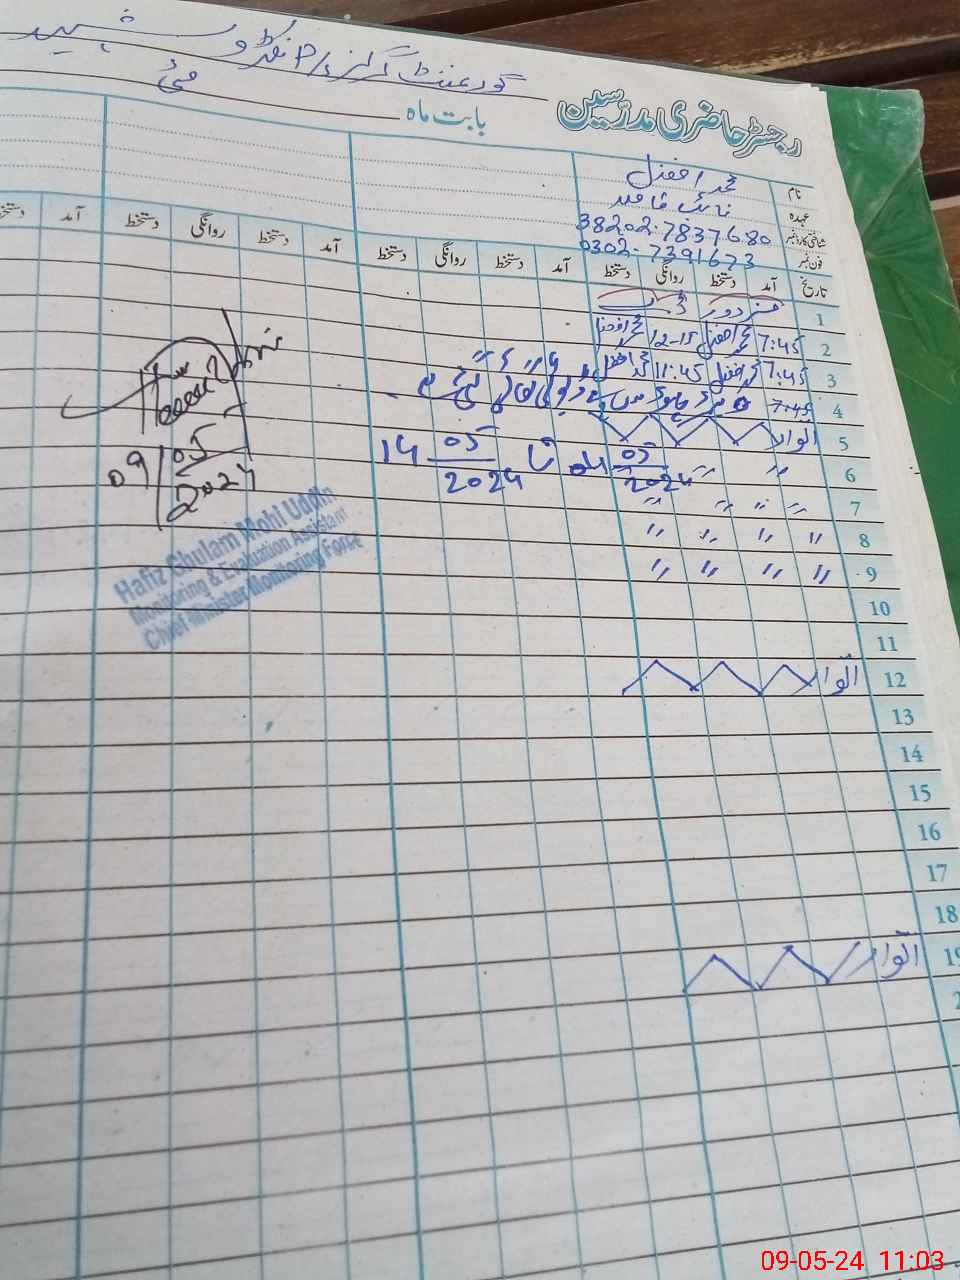 گورنمنٹ گرلز P/S
رجسٹر حاضری مدرسین
بابت ماہ مئی
نام محمد افضل
عہدہ نائب قاصد
شناختی کارڈ نمبر 38202-7837680
فون نمبر 0302-7391673
تاریخ آمد دستخط روانگی دستخط آمد دستخط روانگی دستخط آمد دستخط روانگی دستخط آمد دستخط
1 مزدور ڈے
2 7:45 محمد افضل 12-15 محمد افضل
3 7:45 محمد افضل 11:45 محمد افضل
4 7:45
5 اتوار
6 〃 〃
05/2024 تا 14 05/2024
7 〃 〃 〃 〃
8 〃 〃 〃 〃
9 〃 〃 〃 〃
10
11
12 اتوار
13
14
15
16
17
18
19 اتوار
09/05/2024
Hafiz Ghulam Mohi Uddin
Monitoring & Evaluation Assistant
Chief Minister Monitoring Force
09-05-24 11:03